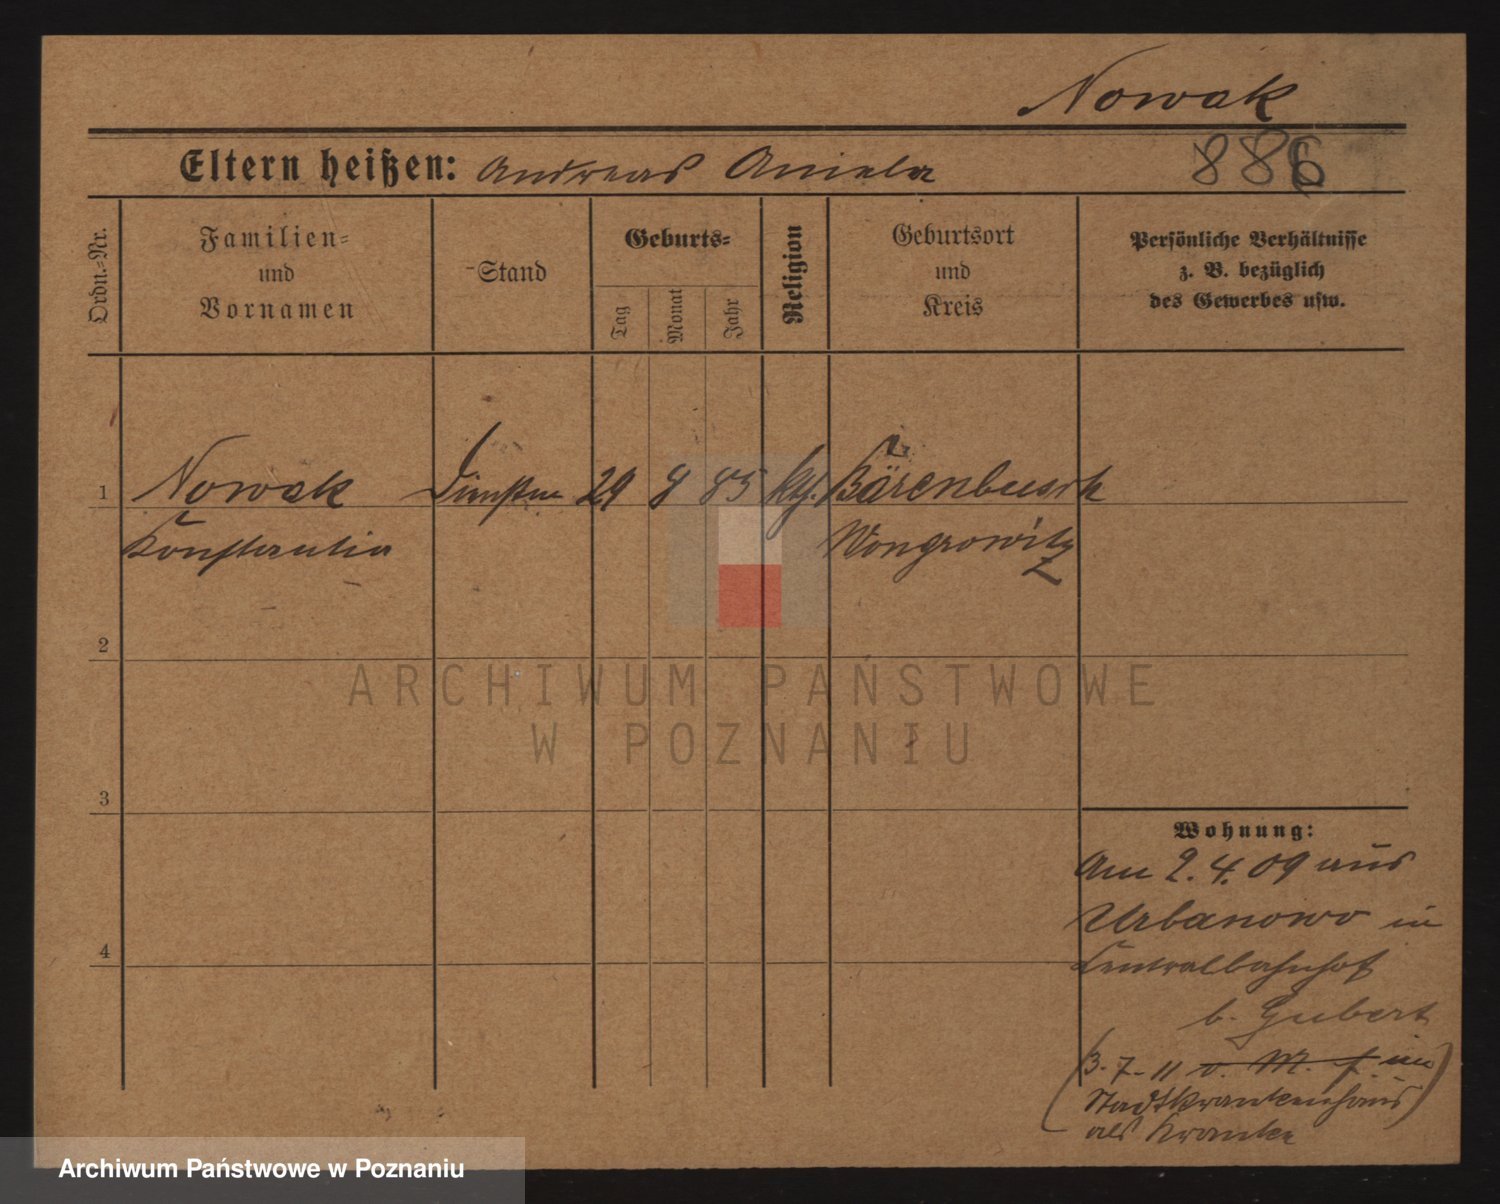 Nowak
886
Eltern heißen: Andreas Aniela
Ordn.-Nr.
Familien- und Vornamen
Stand
Geburts-
Tag
Monat
Jahr
Religion
Geburtsort und Kreis
Persönliche Verhältnisse
z. B. bezüglich
des Gewerbes usw.
1 Nowak 29 8 85 kth. Bärenbusch
Konstantia Wongrowitz
2
3
4
Wohnung:
Am 2. 4. 09 aus
Urbanowo in
Centralbahnhof
b. Gubert
(3. 7. 11 v. M. f. im
Stadtkrankenhaus)
als Kranke
ARCHIWUM PAŃSTWOWE
W POZNANIU
Archiwum Państwowe w Poznaniu